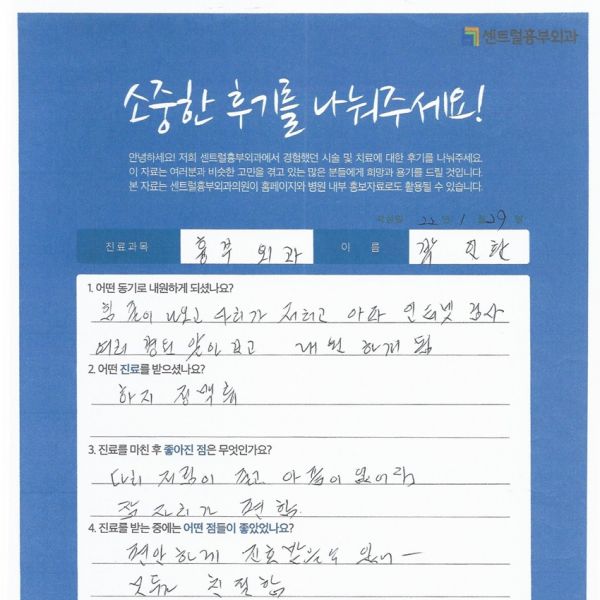 센트럴흉부외과
소중한 후기를 나눠주세요!
안녕하세요! 저희 센트럴흉부외과에서 경험했던 시술 및 치료에 대한 후기를 나눠주세요.
이 자료는 여러분과 비슷한 고민을 겪고 있는 많은 분들에게 희망과 용기를 드릴 것입니다.
본 자료는 센트럴흉부외과의원이 홈페이지와 병원 내부 홍보자료로도 활용될 수 있습니다.
작성일 22년 1월 29일
진료과목 흉부외과 이 름
1. 어떤 동기로 내원하게 되셨나요?
힘줄이 나오고 다리가 저리고 아파 인터넷 검사
내원하게 됨
2. 어떤 진료를 받으셨나요?
하지 정맥류
3. 진료를 마친 후 좋아진 점은 무엇인가요?
다리 저림이 없고 아픔이
잠자리가 편함
4. 진료를 받는 중에는 어떤 점들이 좋았었나요?
편안하게 진료받을수 있어
모두가 친절함